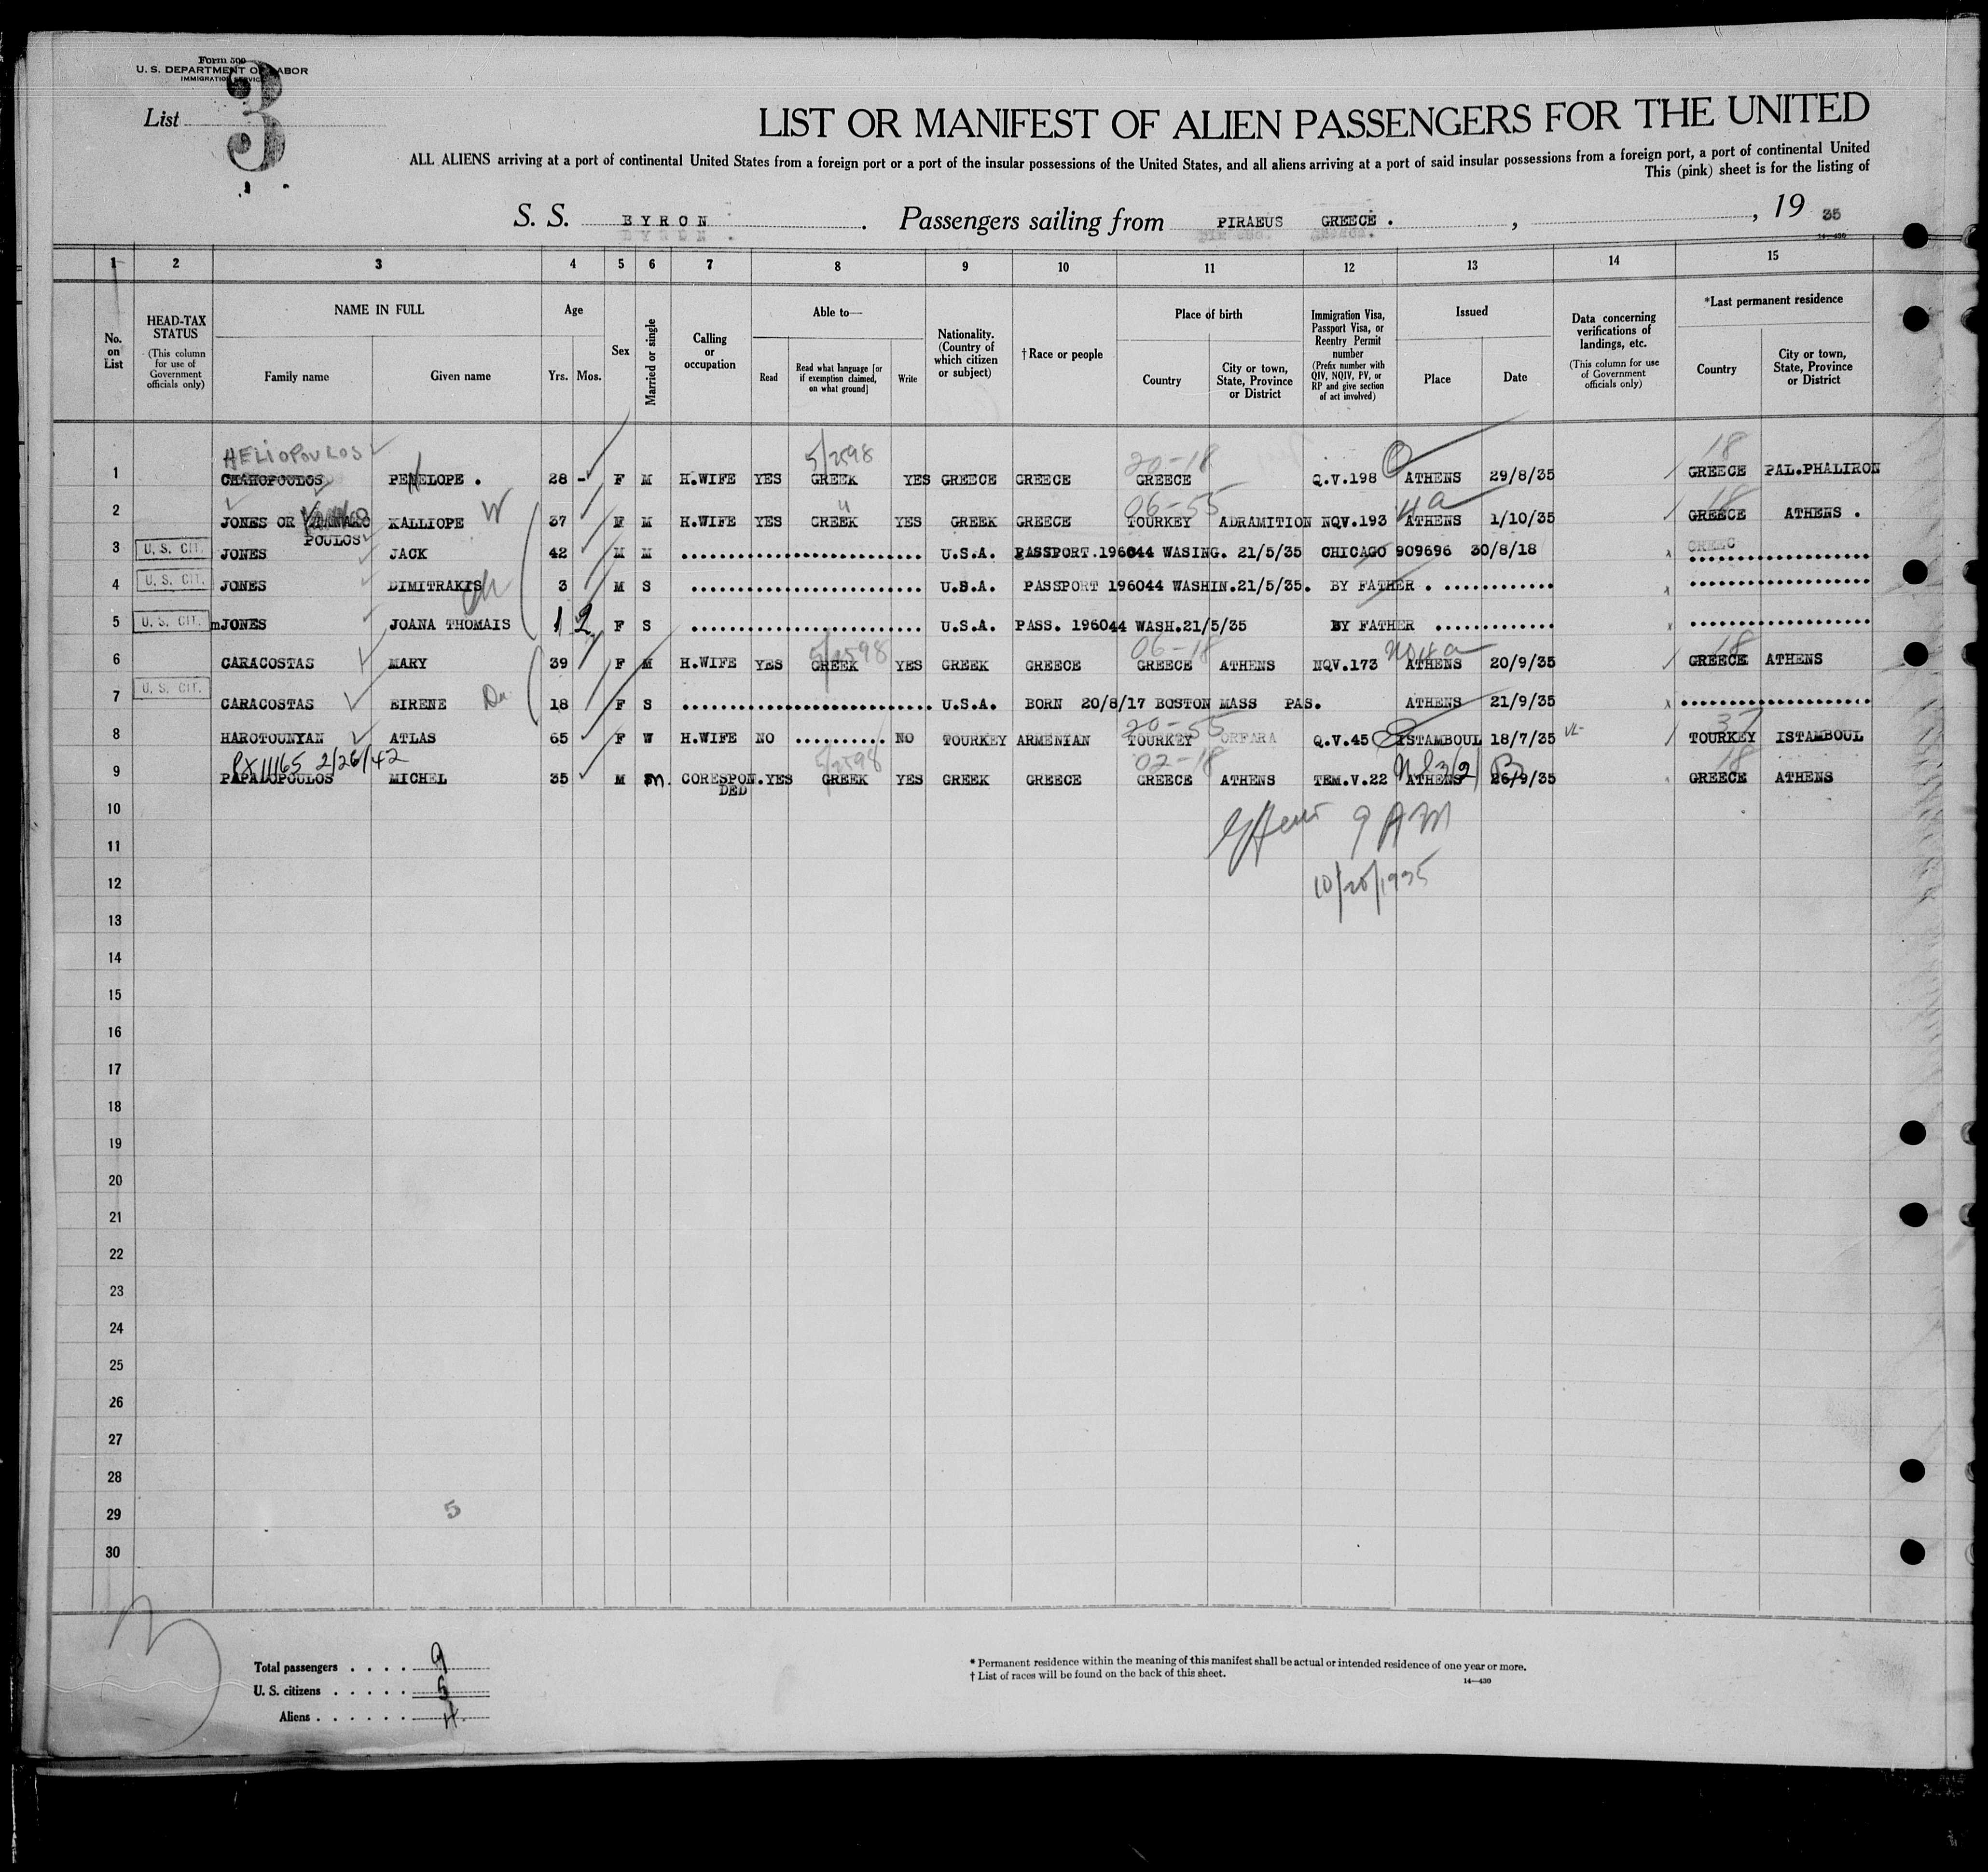 Form 500
U. S. DEPARTMENT OF LABOR
IMMIGRATION SERVICE
List 3
LIST OR MANIFEST OF ALIEN PASSENGERS FOR THE UNITED
ALL ALIENS arriving at a port of continental United States from a foreign port or a port of the insular possessions of the United States, and all aliens arriving at a port of said insular possessions from a foreign port, a port of continental United
This (pink) sheet is for the listing of
S. S. BYRON . Passengers sailing from PIRAEUS GREECE . , , 19 35
14—430
1 2 3 4 5 6 7 8 9 10 11 12 13 14 15
No. on List
HEAD-TAX STATUS (This column for use of Government officials only)
NAME IN FULL
Family name
Given name
Age
Yrs. Mos.
Sex
Married or single
Calling or occupation
Able to—
Read
Read what language [or if exemption claimed, on what ground]
Write
Nationality. (Country of which citizen or subject)
†Race or people
Place of birth
Country
City or town, State, Province or District
Immigration Visa, Passport Visa, or Reentry Permit number (Prefix number with QIV, NQIV, PV, or RP and give section of act involved)
Issued
Place
Date
Data concerning verifications of landings, etc. (This column for use of Government officials only)
*Last permanent residence
Country
City or town, State, Province or District
HELIOPOULOS 5/2598 20-18 18
1 PENELOPE . 28 - F M H.WIFE YES GREEK YES GREECE GREECE GREECE Q.V.198 ATHENS 29/8/35 GREECE PAL.PHALIRON
W 06-55 4a 18
2 JONES OR KALLIOPE 37 F M H.WIFE YES GREEK YES GREEK GREECE TOURKEY ADRAMITION NQV.193 ATHENS 1/10/35 GREECE ATHENS .
POULOS
3 U. S. CIT. JONES JACK 42 M M U.S.A. PASSPORT.196044 WASING. 21/5/35 CHICAGO 909696 30/8/18
4 U. S. CIT. JONES DIMITRAKIS 3 M S U.S.A. PASSPORT 196044 WASHIN.21/5/35. BY FATHER .
5 U. S. CIT. JONES JOANA THOMAIS 1 2 F S U.S.A. PASS. 196044 WASH.21/5/35 BY FATHER
5/2598 06-18 18
6 CARACOSTAS MARY 39 F M H.WIFE YES GREEK YES GREEK GREECE GREECE ATHENS NQV.173 ATHENS 20/9/35 GREECE ATHENS
7 U. S. CIT. CARACOSTAS EIRENE Da 18 F S U.S.A. BORN 20/8/17 BOSTON MASS PAS. ATHENS 21/9/35
20-55 37
8 HAROTOUNYAN ATLAS 65 F W H.WIFE NO NO TOURKEY ARMENIAN TOURKEY ORFARA Q.V.45 ISTAMBOUL 18/7/35 VL- TOURKEY ISTAMBOUL
PX11165 2/26/42 5/2598 02-18 18
9 PAPALOPOULOS MICHEL 35 M m. CORESPON. YES GREEK YES GREEK GREECE GREECE ATHENS TEM.V.22 ATHENS 26/9/35 GREECE ATHENS
DED
10
9 AM
11
12 10/20/1935
13
14
15
16
17
18
19
20
21
22
23
24
25
26
27
28
29 5
30
3
Total passengers . . . . 9
U. S. citizens . . . . . 5
Aliens . . . . . . 4
* Permanent residence within the meaning of this manifest shall be actual or intended residence of one year or more.
† List of races will be found on the back of this sheet.
14—430